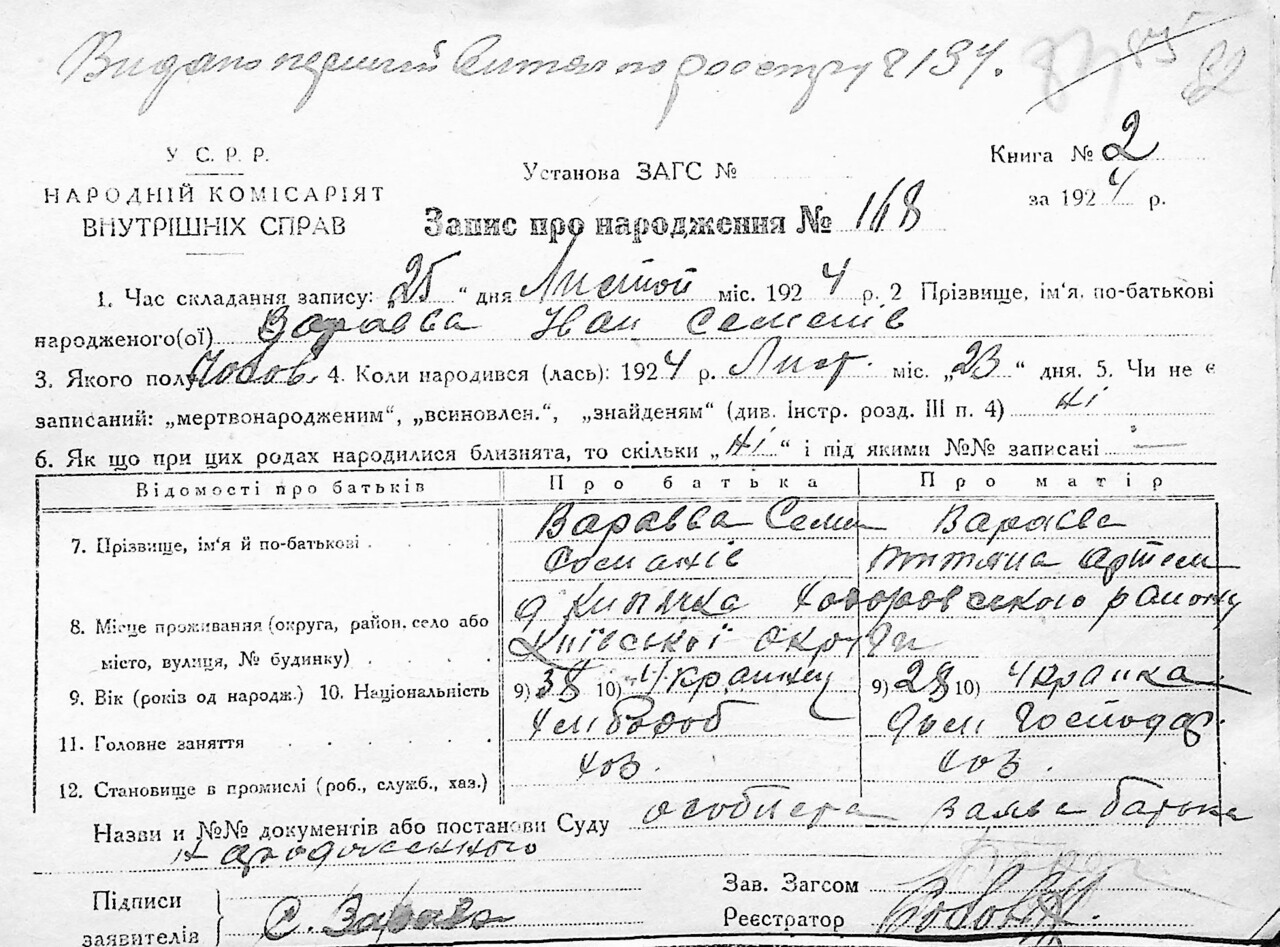 Видано першій витяг по реєстру 2134.
82
У С. Р. Р.
НАРОДНІЙ КОМІСАРІЯТ
ВНУТРІШНІХ СПРАВ
Установа ЗАГС №
Книга № 2
за 1924 р.
Запис про народження № 168
1. Час складання запису: „25“ дня Листоп міс. 1924 р. 2 Прізвище, ім'я, по-батькові
народженого(ої) Варавва Иван Семенів
3. Якого полу Чолов. 4. Коли народився (лась): 1924 р. Лист. міс. „23“ дня. 5. Чи не є
записаний: „мертвонародженим“, „всиновлен.“, „знайденям“ (див. Інстр. розд. III п. 4) Ні
6. Як що при цих родах народилися близнята, то скільки „Ні“ і під якими №№ записані —
Відомості про батьків Про батька Про матір
7. Прізвище, ім'я й по-батькові Варавва Семен Варавва
Тетяна Артем
8. Місце проживання (округа, район, село або Ходоровського району
місто, вулиця, № будинку) Київської Округи
9. Вік (років од народж.) 10. Національність 9) 38 10) Українец 9) 28 10) Українка
11. Головне заняття Хлібороб Дом Господар.
12. Становище в промислі (роб., служб., хаз.) хоз. хоз.
Назви и №№ документів або постанови Суду особиста заява батька
народженного
Підписи
заявителів С. Варава
Зав. Загсом
Реєстратор